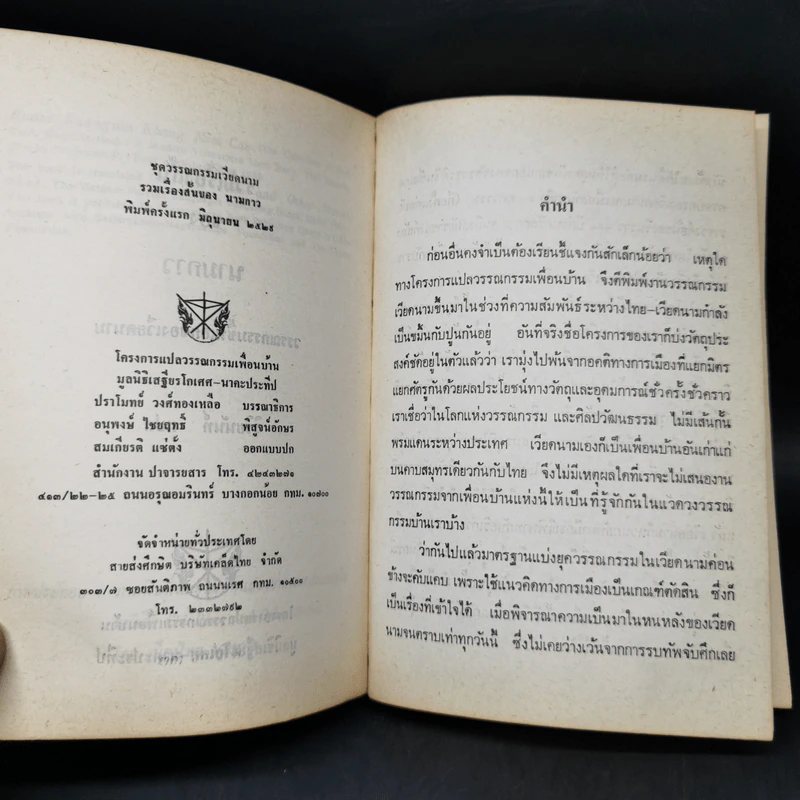 ชุดวรรณกรรมเวียดนาม
รวมเรื่องสั้นของ นามกาว
พิมพ์ครั้งแรก มิถุนายน ๒๕๒๙
โครงการแปลวรรณกรรมเพื่อนบ้าน
มูลนิธิเสฐียรโกเศศ-นาคะประทีป
ปราโมทย์ วงศ์ทองเหลือ บรรณาธิการ
อนุพงษ์ ไชยฤทธิ์ พิสูจน์อักษร
สมเกียรติ แซ่ตั้ง ออกแบบปก
สำนักงาน ปาจารยสาร โทร. ๔๒๔๓๒๗๑
๔๑๓/๒๒-๒๕ ถนนอรุณอมรินทร์ บางกอกน้อย กทม. ๑๐๗๐๐
จัดจำหน่ายทั่วประเทศโดย
สายส่งศึกษิต บริษัทเคล็ดไทย จำกัด
๓๐๓/๗ ซอยสันติภาพ ถนนนเรศ กทม. ๑๐๕๐๐
โทร. ๒๓๓๒๗๙๒
คำนำ
ก่อนอื่นคงจำเป็นต้องเรียนชี้แจงกันสักเล็กน้อยว่า เหตุใด
ทางโครงการแปลวรรณกรรมเพื่อนบ้าน จึงตีพิมพ์งานวรรณกรรม
เวียดนามขึ้นมาในช่วงที่ความสัมพันธ์ระหว่างไทย-เวียดนามกำลัง
เป็นขมิ้นกับปูนกันอยู่ อันที่จริงชื่อโครงการของเราก็บ่งวัตถุประ
สงค์ชัดอยู่ในตัวแล้วว่า เรามุ่งไปพ้นจากอคติทางการเมืองที่แยกมิตร
แยกศัตรูกันด้วยผลประโยชน์ทางวัตถุและอุดมการณ์ชั่วครั้งชั่วคราว
เราเชื่อว่าในโลกแห่งวรรณกรรม และศิลปวัฒนธรรม ไม่มีเส้นกั้น
พรมแดนระหว่างประเทศ เวียดนามเองก็เป็นเพื่อนบ้านอันเก่าแก่
บนคาบสมุทรเดียวกันกับไทย จึงไม่มีเหตุผลใดที่เราจะไม่เสนองาน
วรรณกรรมจากเพื่อนบ้านแห่งนี้ให้เป็นที่รู้จักกันในแวดวงวรรณ
กรรมบ้านเราบ้าง
ว่ากันไปแล้วมาตรฐานแบ่งยุควรรณกรรมในเวียดนามค่อน
ข้างจะคับแคบ เพราะใช้แนวคิดทางการเมืองเป็นเกณฑ์ตัดสิน ซึ่งก็
เป็นเรื่องที่เข้าใจได้ เมื่อพิจารณาความเป็นมาในหนหลังของเวียด
นามจนตราบเท่าทุกวันนี้ ซึ่งไม่เคยว่างเว้นจากการรบทัพจับศึกเลย